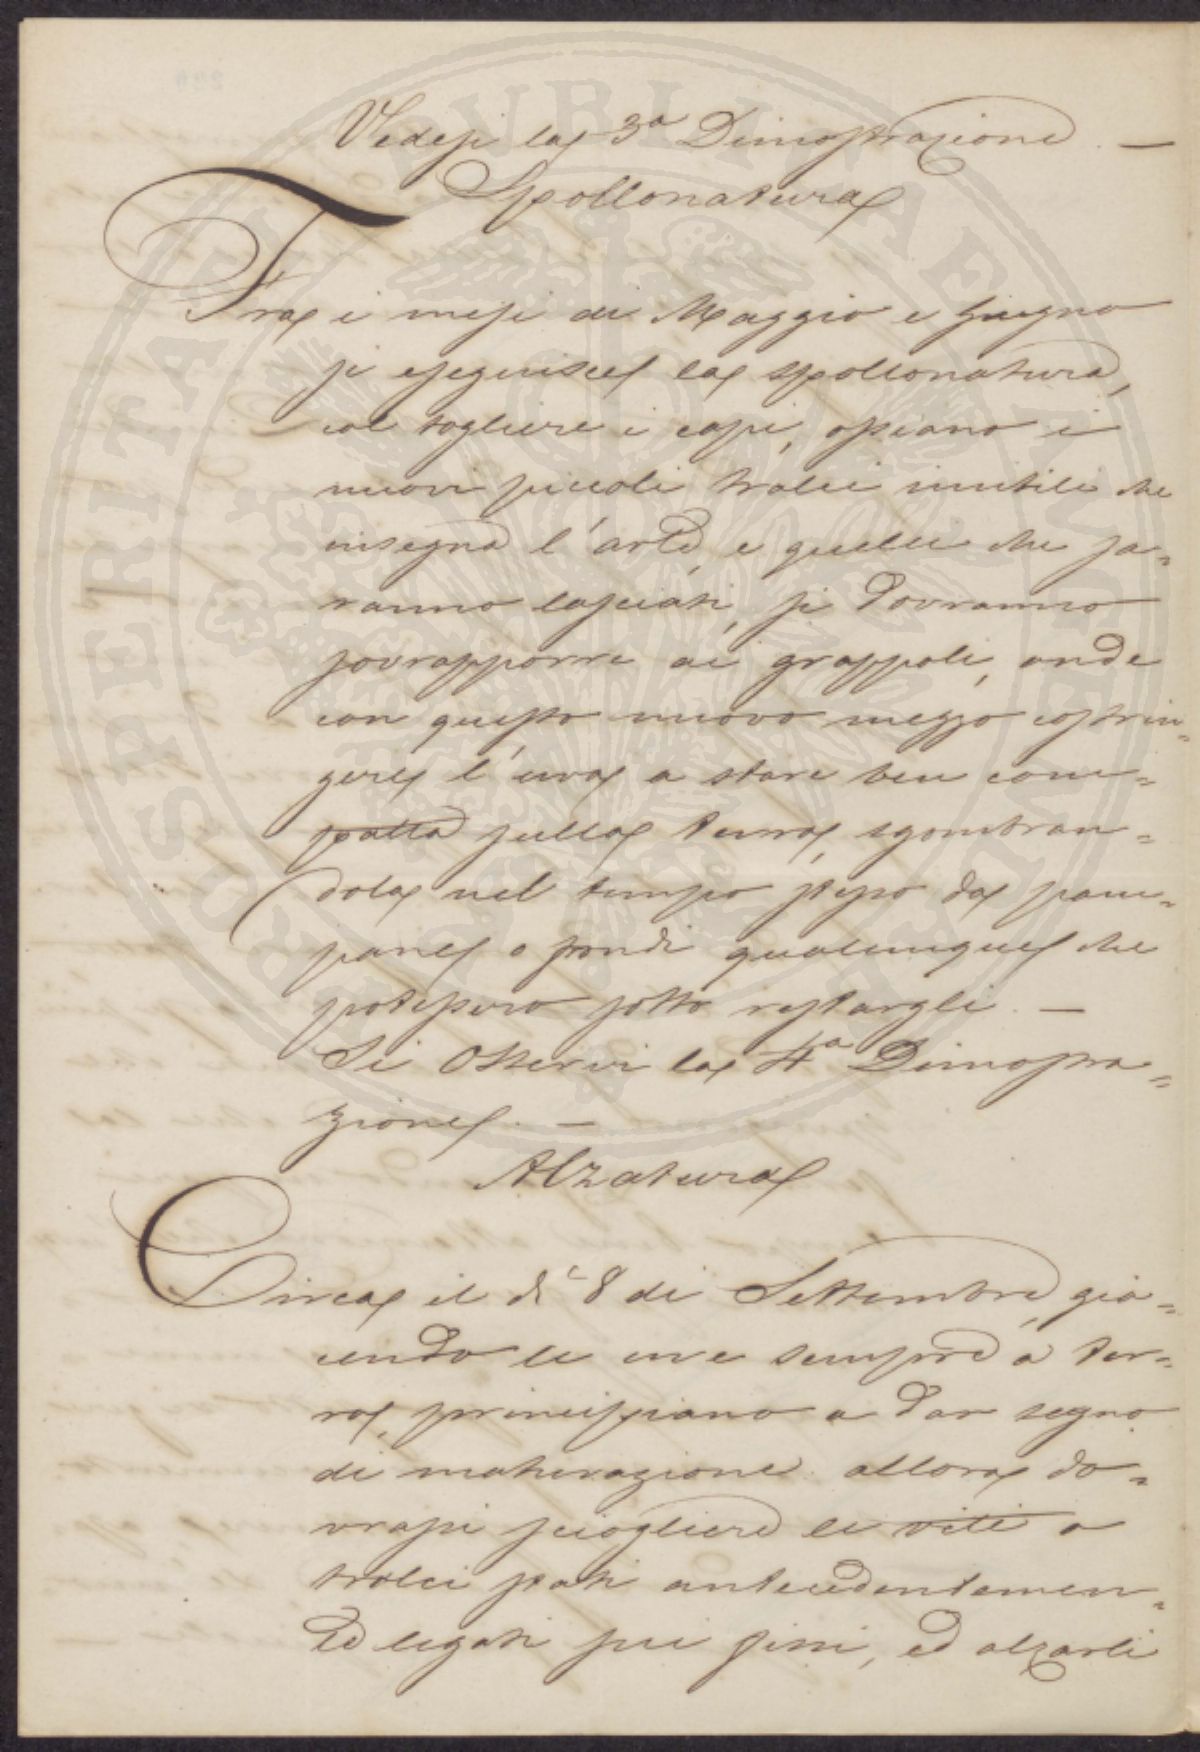 Vedesi la 3a Dimostrazione. —
Spollonatura
Fra i mesi di Maggio e Giugno
si eseguisce la spollonatura,
col togliere i capi, ossiano i
nuovi piccoli tralci inutili che
insegna l'arte, e quelli che sa=
ranno lasciati, si dovranno
sovrapporre ai grappoli, onde
con questo nuovo mezzo costrin=
gere l'uva a stare ben com=
patta sulla terra, sgombran=
dola nel tempo stesso da pam=
pane o frondi qualunque che
potessero sotto restargli. —
Si osservi la 4a Dimostra=
zione. —
Alzatura
Circa il dì 8 di Settembre, gia=
cendo le uve sempre a ter=
ra, principiano a dar segno
di maturazione allora do=
vrassi sciogliere le viti o
tralci stati antecedentemen=
te legati sui fissi, ed alzarli
SPERITATI PVBLICAE AVGENDAE